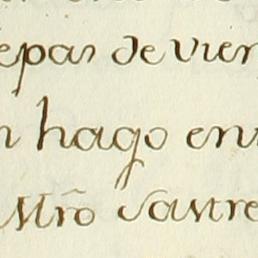 epan de vien
n hago env
Mr̃o Sastre